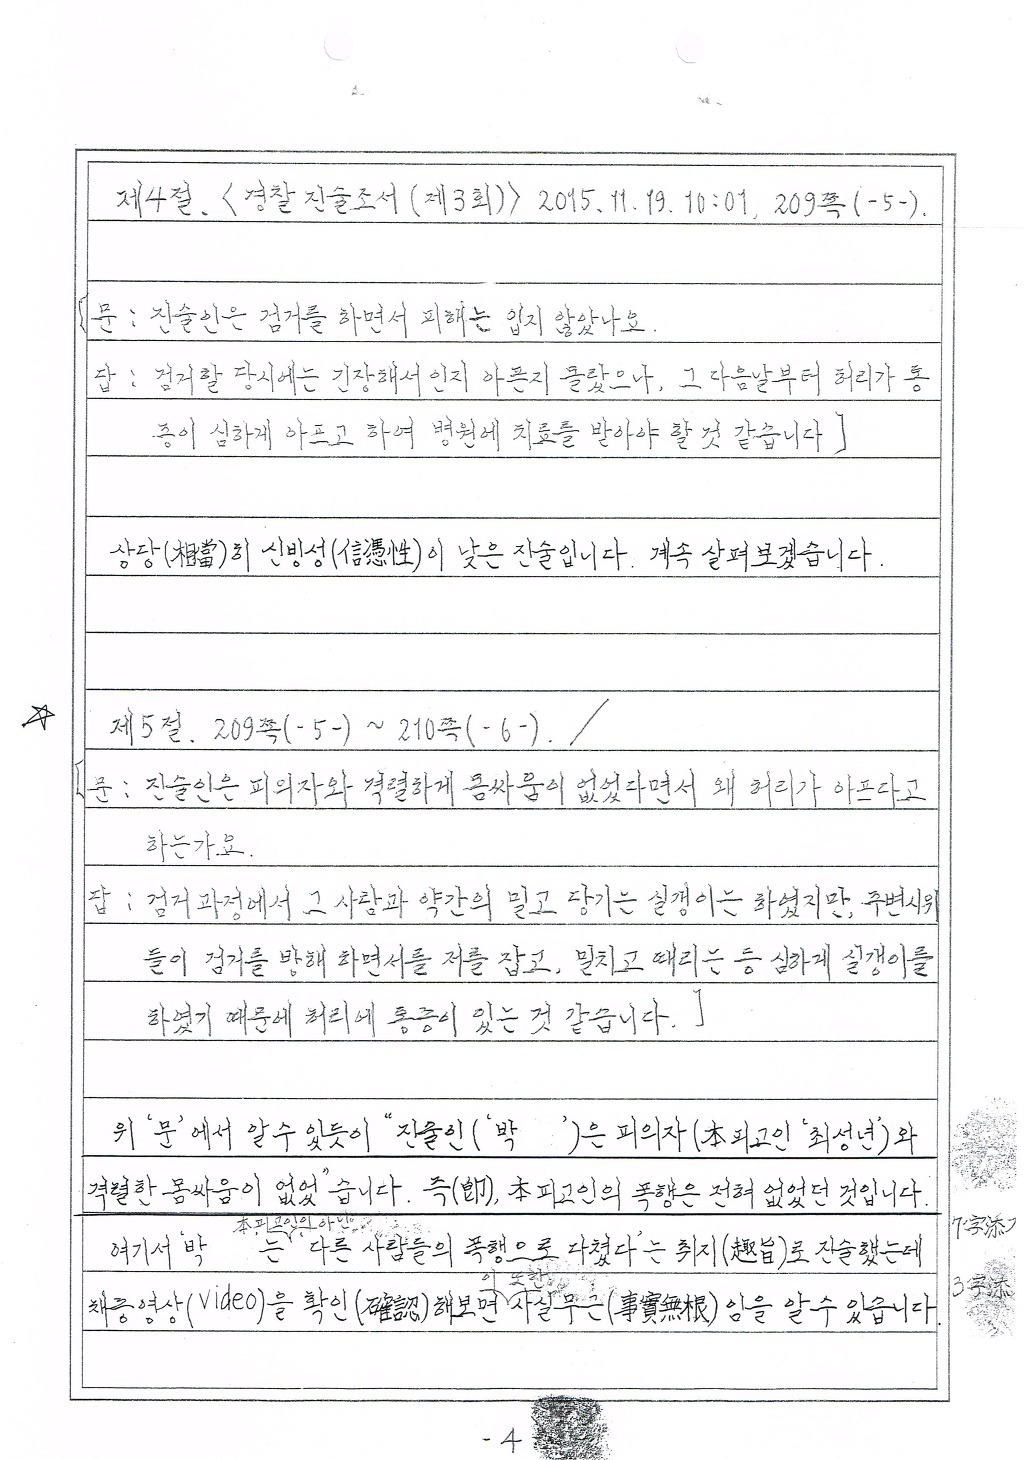 제4절. 〈경찰 진술조서(제3회)〉 2015. 11. 19. 10:01, 209쪽(-5-).
[문 : 진술인은 검거를 하면서 피해는 입지 않았나요.
답 : 검거할 당시에는 긴장해서인지 아픈지 몰랐으나, 그 다음날부터 허리가 통
증이 심하게 아프고 하여 병원에 치료를 받아야 할 것 같습니다]
상당(相當)히 신빙성(信憑性)이 낮은 진술입니다. 계속 살펴보겠습니다.
☆ 제5절. 209쪽(-5-) ~ 210쪽(-6-). /
[문 : 진술인은 피의자와 격렬하게 몸싸움이 없었다면서 왜 허리가 아프다고
하는가요.
답 : 검거과정에서 그 사람과 약간의 밀고 당기는 실갱이는 하였지만, 주변시위
들이 검거를 방해 하면서를 저를 잡고, 밀치고 때리는 등 심하게 실갱이를
하였기 때문에 허리에 통증이 있는 것 같습니다.]
위 '문'에서 알 수 있듯이 "진술인('박 ')은 피의자(本피고인 '최성년')와
격렬한 몸싸움이 없었"습니다. 즉(卽), 本피고인의 폭행은 전혀 없었던 것입니다.
本피고인의 아닌
여기서 '박 는 '다른 사람들의 폭행으로 다쳤다'는 취지(趣旨)로 진술했는데
7字添가
이 또한
채증영상(video)을 확인(確認)해보면 사실무근(事實無根)임을 알 수 있습니다.
3字添
- 4 -